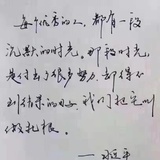 每个优秀的人，都有一段
沉默的时光。那段时光，
是付出了很多努力，却得不
到结果的日子，我们把它叫
做扎根。